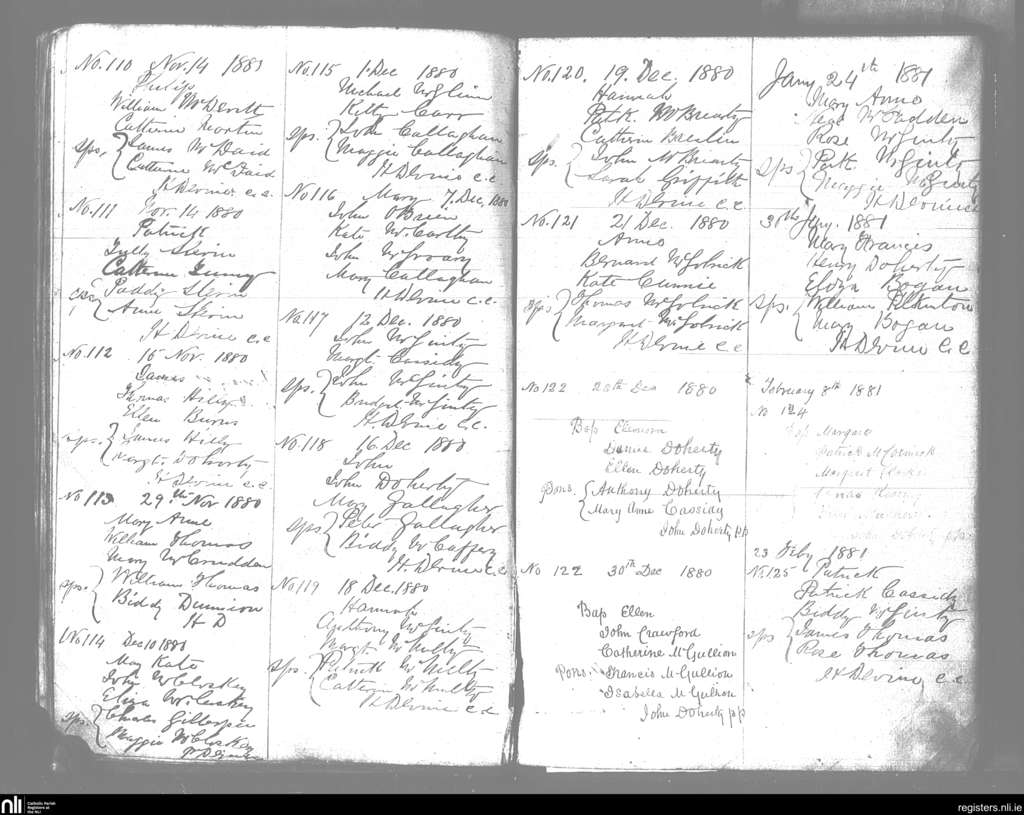 No. 110 Nov. 14 1880
Philip
William McDevitt
Catherine Martin
sps. James McDaid
Catherine McDaid
H Devine c.c.
No. 111 Nov. 14 1880
Patrick
Catherine
Paddy
Anne
H Devine c.c
No. 112 15 Nov. 1880
James
Thomas
Ellen Burns
sps. James
Margt. Doherty
H Devine c.c.
No 113 29th Nov 1880
Mary Anne
William Thomas
Mary McCrudden
sps. William Thomas
Biddy Dunnion
H D
No. 114 Dec 10 1880
May Kate
John McCloskey
Eliza McCaskey
sps. Charles Gillespie
Maggie McCloskey
No. 115 1 Dec 1880
Michael McGlinn
Kitty Carr
sps. John Callaghan
Maggie Callaghan
H Devine c.c.
No 116 Mary 7. Dec, 1880
John O'Brien
Kate McCarthy
John
Mary Callaghan
H Devine c.c.
No. 117 12 Dec. 1880
John McGinty
Margt. Cassidy
sps. John McGinty
Bridget McGinty
H. Devine c.c.
No. 118 16 Dec 1880
John
John Doherty
Mary Gallagher
sps Peter Gallagher
Biddy McCafferty
H. Devine c.c.
No. 119 18 Dec. 1880
Hannah
Anthony McGinty
Margt. McNulty
sps. McNulty
Catherine McNulty
H Devine c.c
No. 120. 19. Dec. 1880
Hannah
Patk. McBrearty
Catherine Breslin
sps. John McBrearty
Sarah Griffith
H Devine c.c
No. 121 21 Dec. 1880
Anne
Bernard McGolrick
Kate Cunnie
sps Thomas McGolrick
Margaret McGolrick
H Devine c.c
No 122 28th Dec 1880
Bap
James Doherty
Ellen Doherty
Pons. Anthony Doherty
Mary Anne Cassidy
John Doherty pp
No 122 30th Dec 1880
Bap Ellen
John Crawford
Catherine McGullion
Pons. Francis McGullion
Isabella McGullion
John Doherty pp
Jany 24th 1881
Mary Anne
McFadden
Rose McGinty
sps Patk. McGinty
Maggie McGinty
H Devine cc
30th Jany. 1881
Mary Francis
Henry Doherty
Bogan
sps. William Elkinton
Mary Bogan
H Devine C.C.
February 8th 1881
No 124
Bap Margaret
Patrick McCormick
Margaret
John Doherty pp
23 Feby 1881
No. 125 Patrick
Patrick Cassidy
Biddy McGinty
sps James Thomas
Rose Thomas
H Devine c.c.
nli
Catholic Parish
Registers at
the NLI
registers.nli.ie